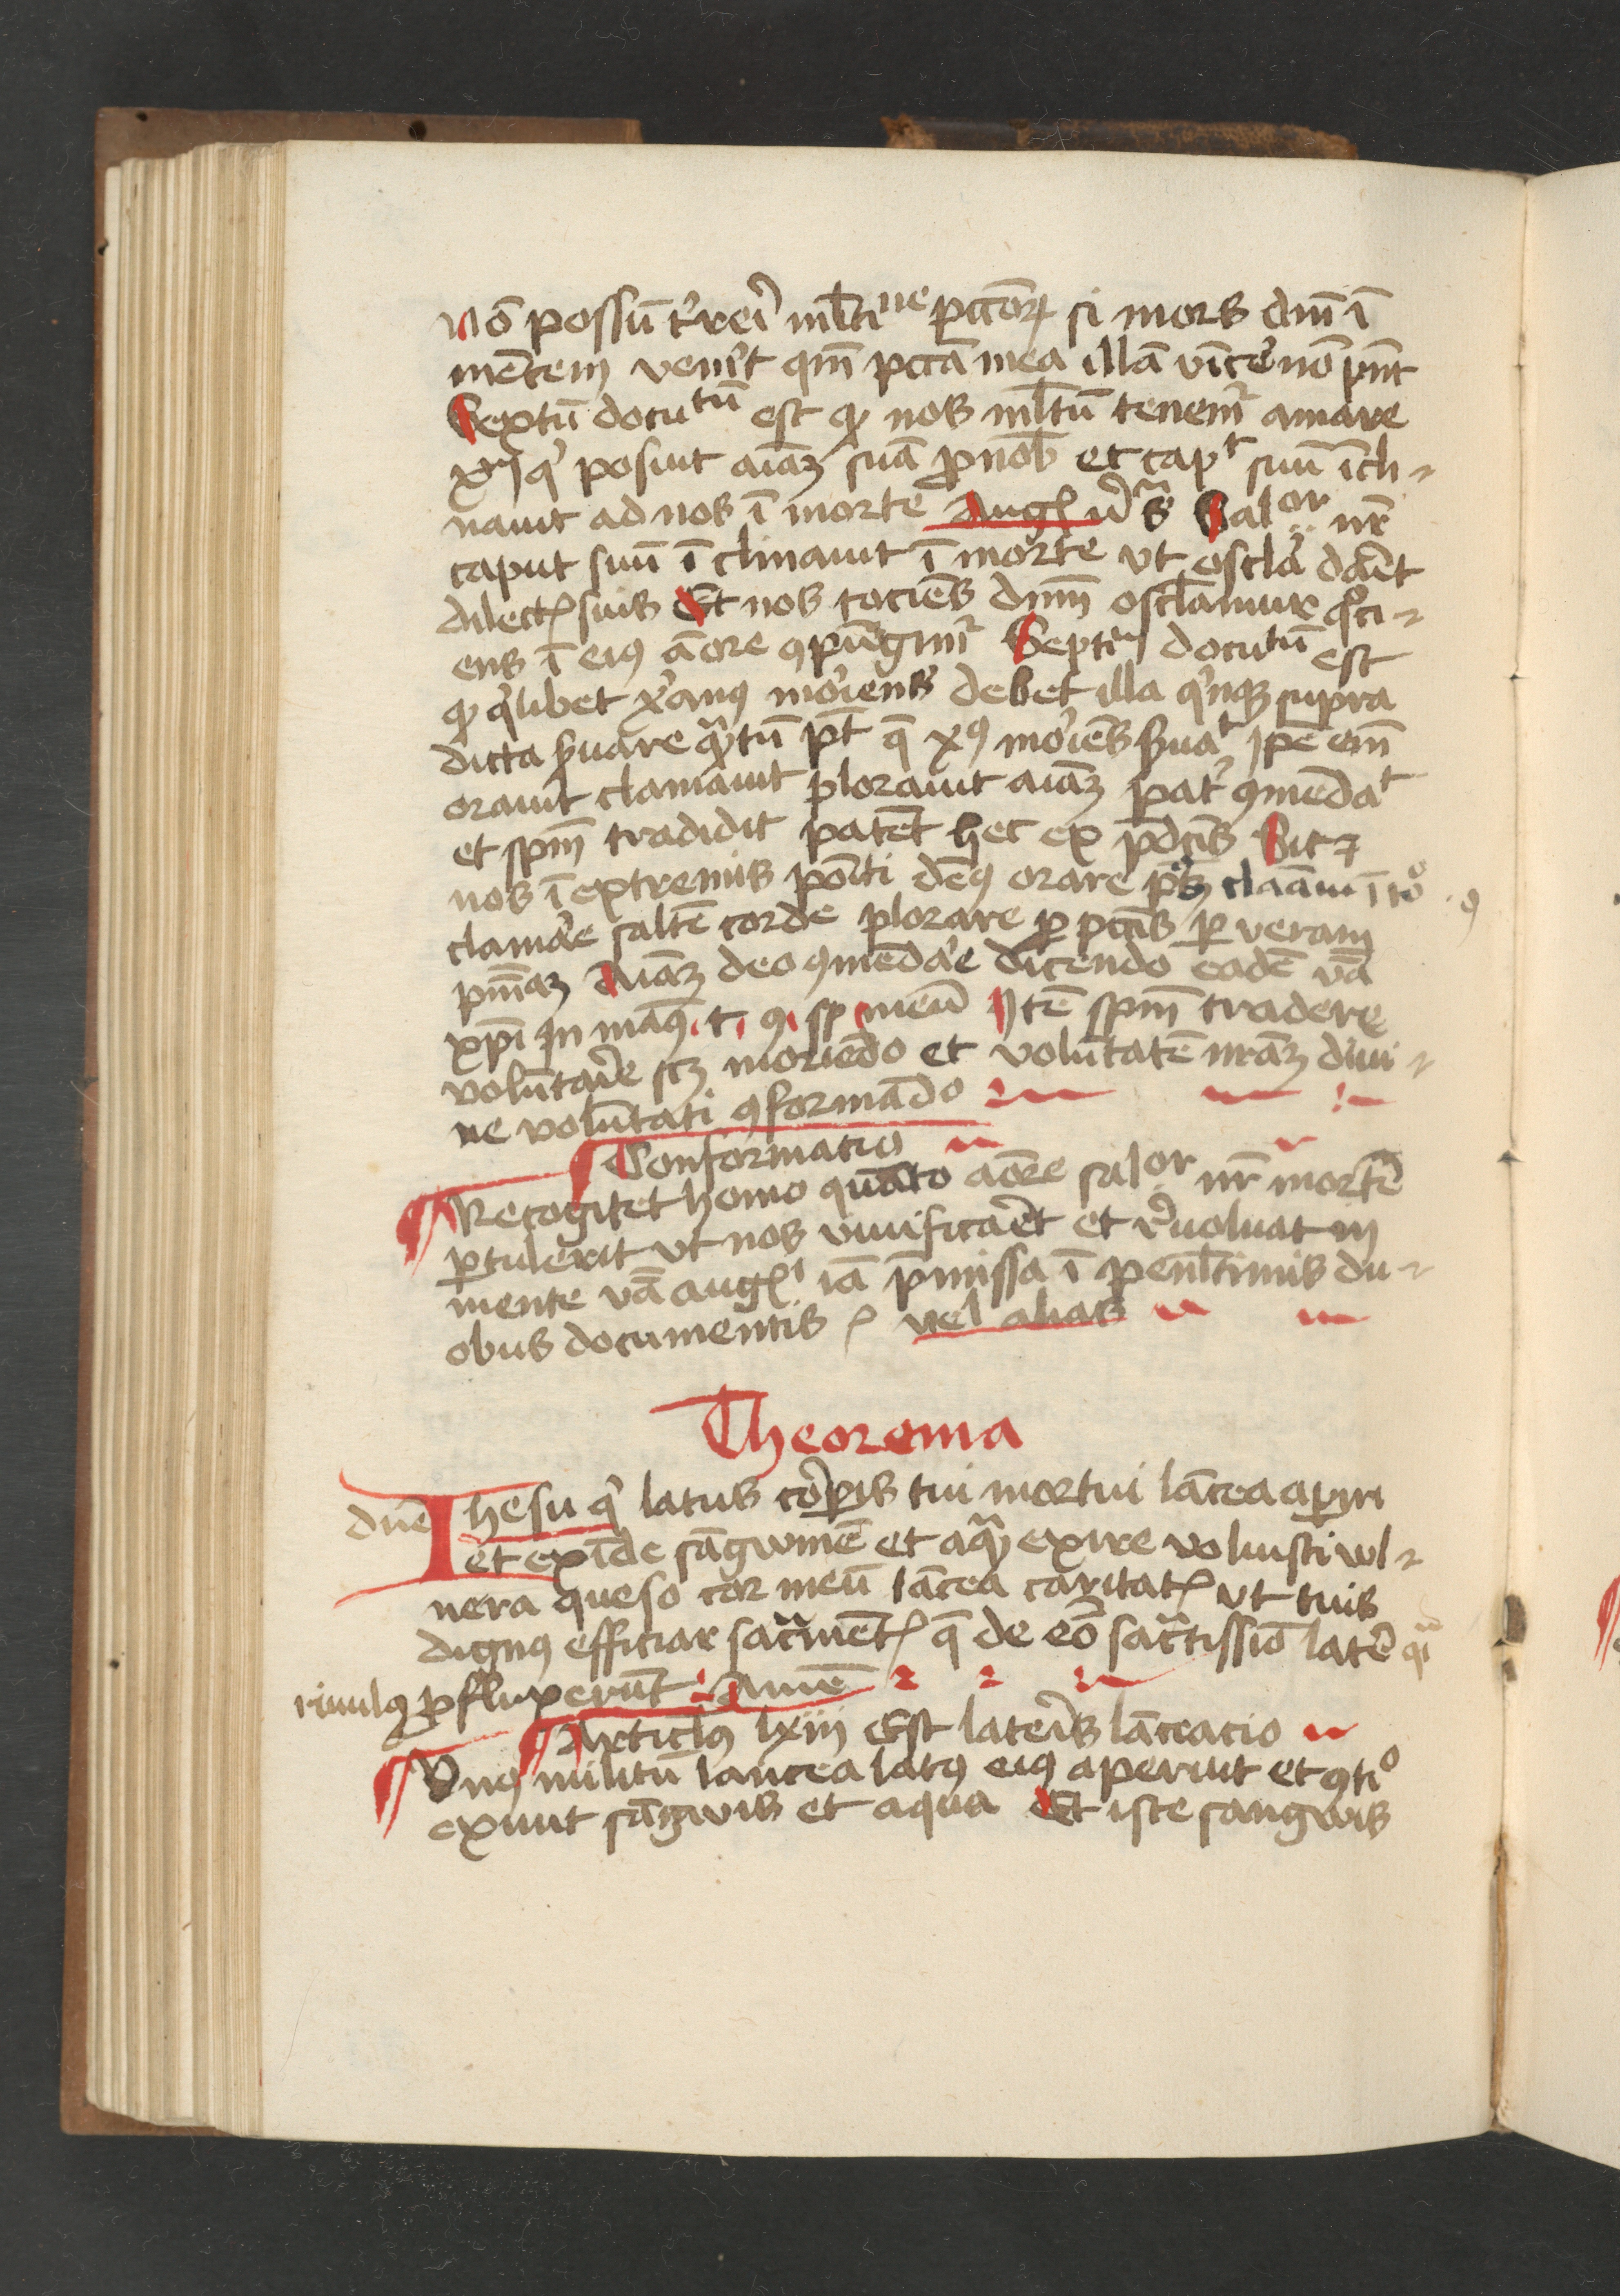 Nō possū t'rei' ml̄tine pcc̄oꝝ si mors dn̄i ī
mētem ven'it qm̄ pccā mea illā vīce' nō pn̄t
Sextū docutū est ꝙ nos ml̄tū tenem' amare
xp̄m q' posuit aīaꝫ suā ꝓ nob̄ et capt suū īcli-
nauit ad nos ī morte Augꝰ Salor nr̄
caput suū īclinauit ī morte vt oscla dar̄et
dilectꝭ suis Et nos tociēs dn̄m osclamur qͦci-
ens ī eiꝰ āore ꝯpūgim' Septīū docutū est
ꝙ q'libet x'anꝰ mo'iens debet illa q'nqꝫ supra
dicta s'uare qͣtū pt̄ q̄ xꝰ mo'iēs s'uat ip̄e em̄
orauit clamauit plorauit aīaꝫ pat' ꝯmēdat
et spm̄ tradidit patēt hec ex p̄dc̄is Sic ⁊
nos ī extremis pōiti dem' orare
clamāe saltē corde plorare ꝓ pcc̄is ꝑ veram
pn̄iaꝫ Aīaꝫ deo ꝯmēdāe dicendo eadē v̄ba
xp̄i In manꝰ . t . ꝯ . sp meū Itē spm̄ tradere
volūtar̄ie scꝫ moriēdo et volūtatē nr̄aꝫ diui-
ne volūtati ꝯformādo
Conformatio
Recogitet homo quāto āore salor nr̄ mortē
ꝑtulerit vt nos viuificar̄et et r'uoluat in
mente v̄ba augꝰi iā p̄missa ī penl̄timis du-
obus documentis ꝭ vel alias
Theorema
dn̄e Ihesu q' latus cor̄pis tui mortui lācea aꝑiri
et exīde sāgwinē et aqͣꝫ exire voluisti wl-
nera queso cor meū lācea caritatꝭ vt tuis
dignꝰ efficiar sacͣmētꝭ q̄ de eo' sacͣtissīo later̄e qͣi
riuulꝰ ꝓfluxerūt Amē
Articl̄us lxiij Est later̄is lāceacio
Vnꝰ militū lancea latꝰ eiꝰ aperuit et ꝯtiº
exiuit sāgwis et aqua Et iste sangwis